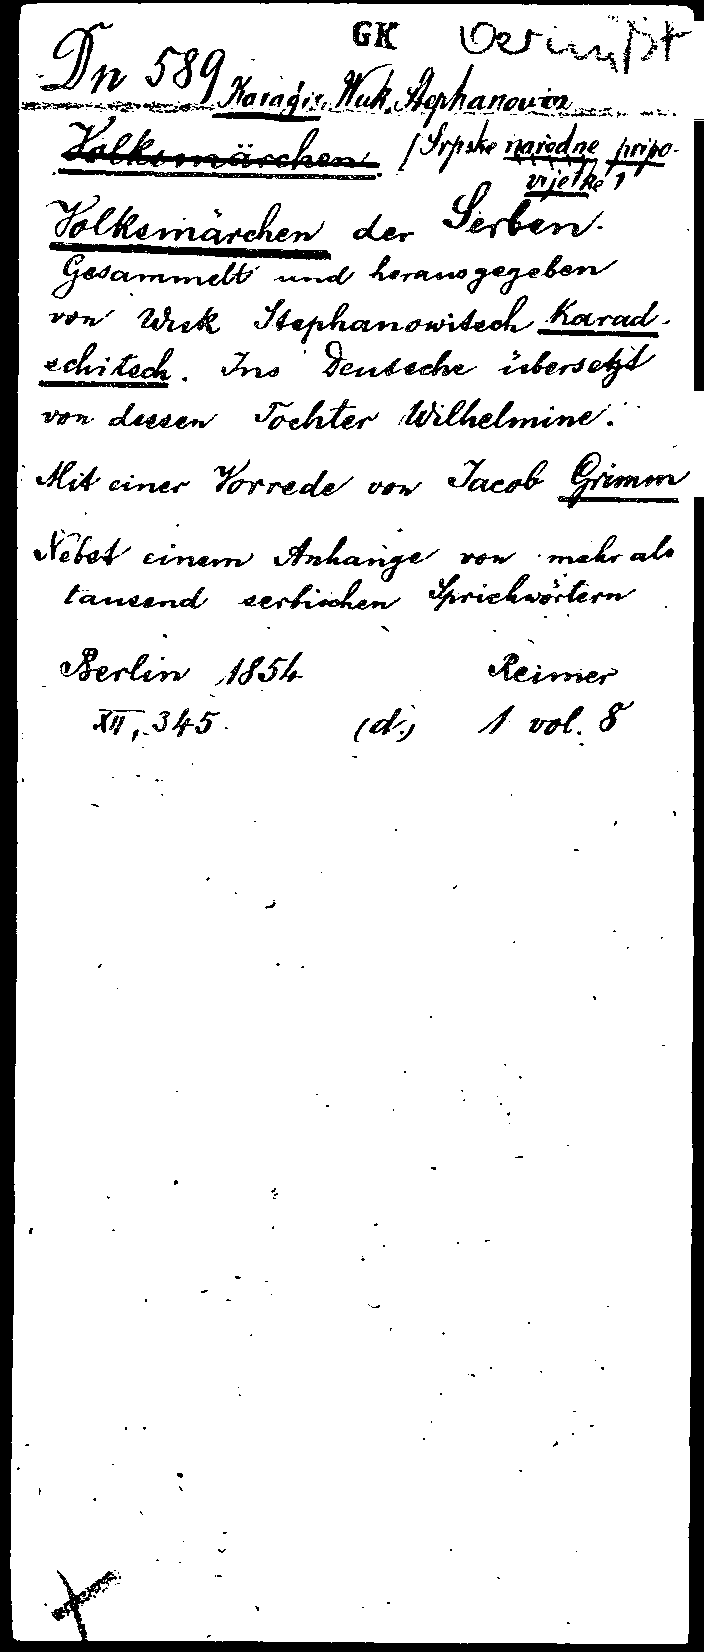 GK vermißt
Dn 589 Karağić, Wuk Stephanović
Volksmärchen [Srpske narodne pripo-
vijetke]
Volksmärchen der Serben.
Gesammelt und herausgegeben
von Wuk Stephanowitsch Karad-
schitsch. Ins Deutsche übersetzt
von dessen Tochter Wilhelmine.
Mit einer Vorrede von Jacob Grimm
Nebst einem Anhange von mehr als
tausend serbischen Sprichwörtern
Berlin 1854 Reimer
XII, 345. (d.) 1 vol. 8